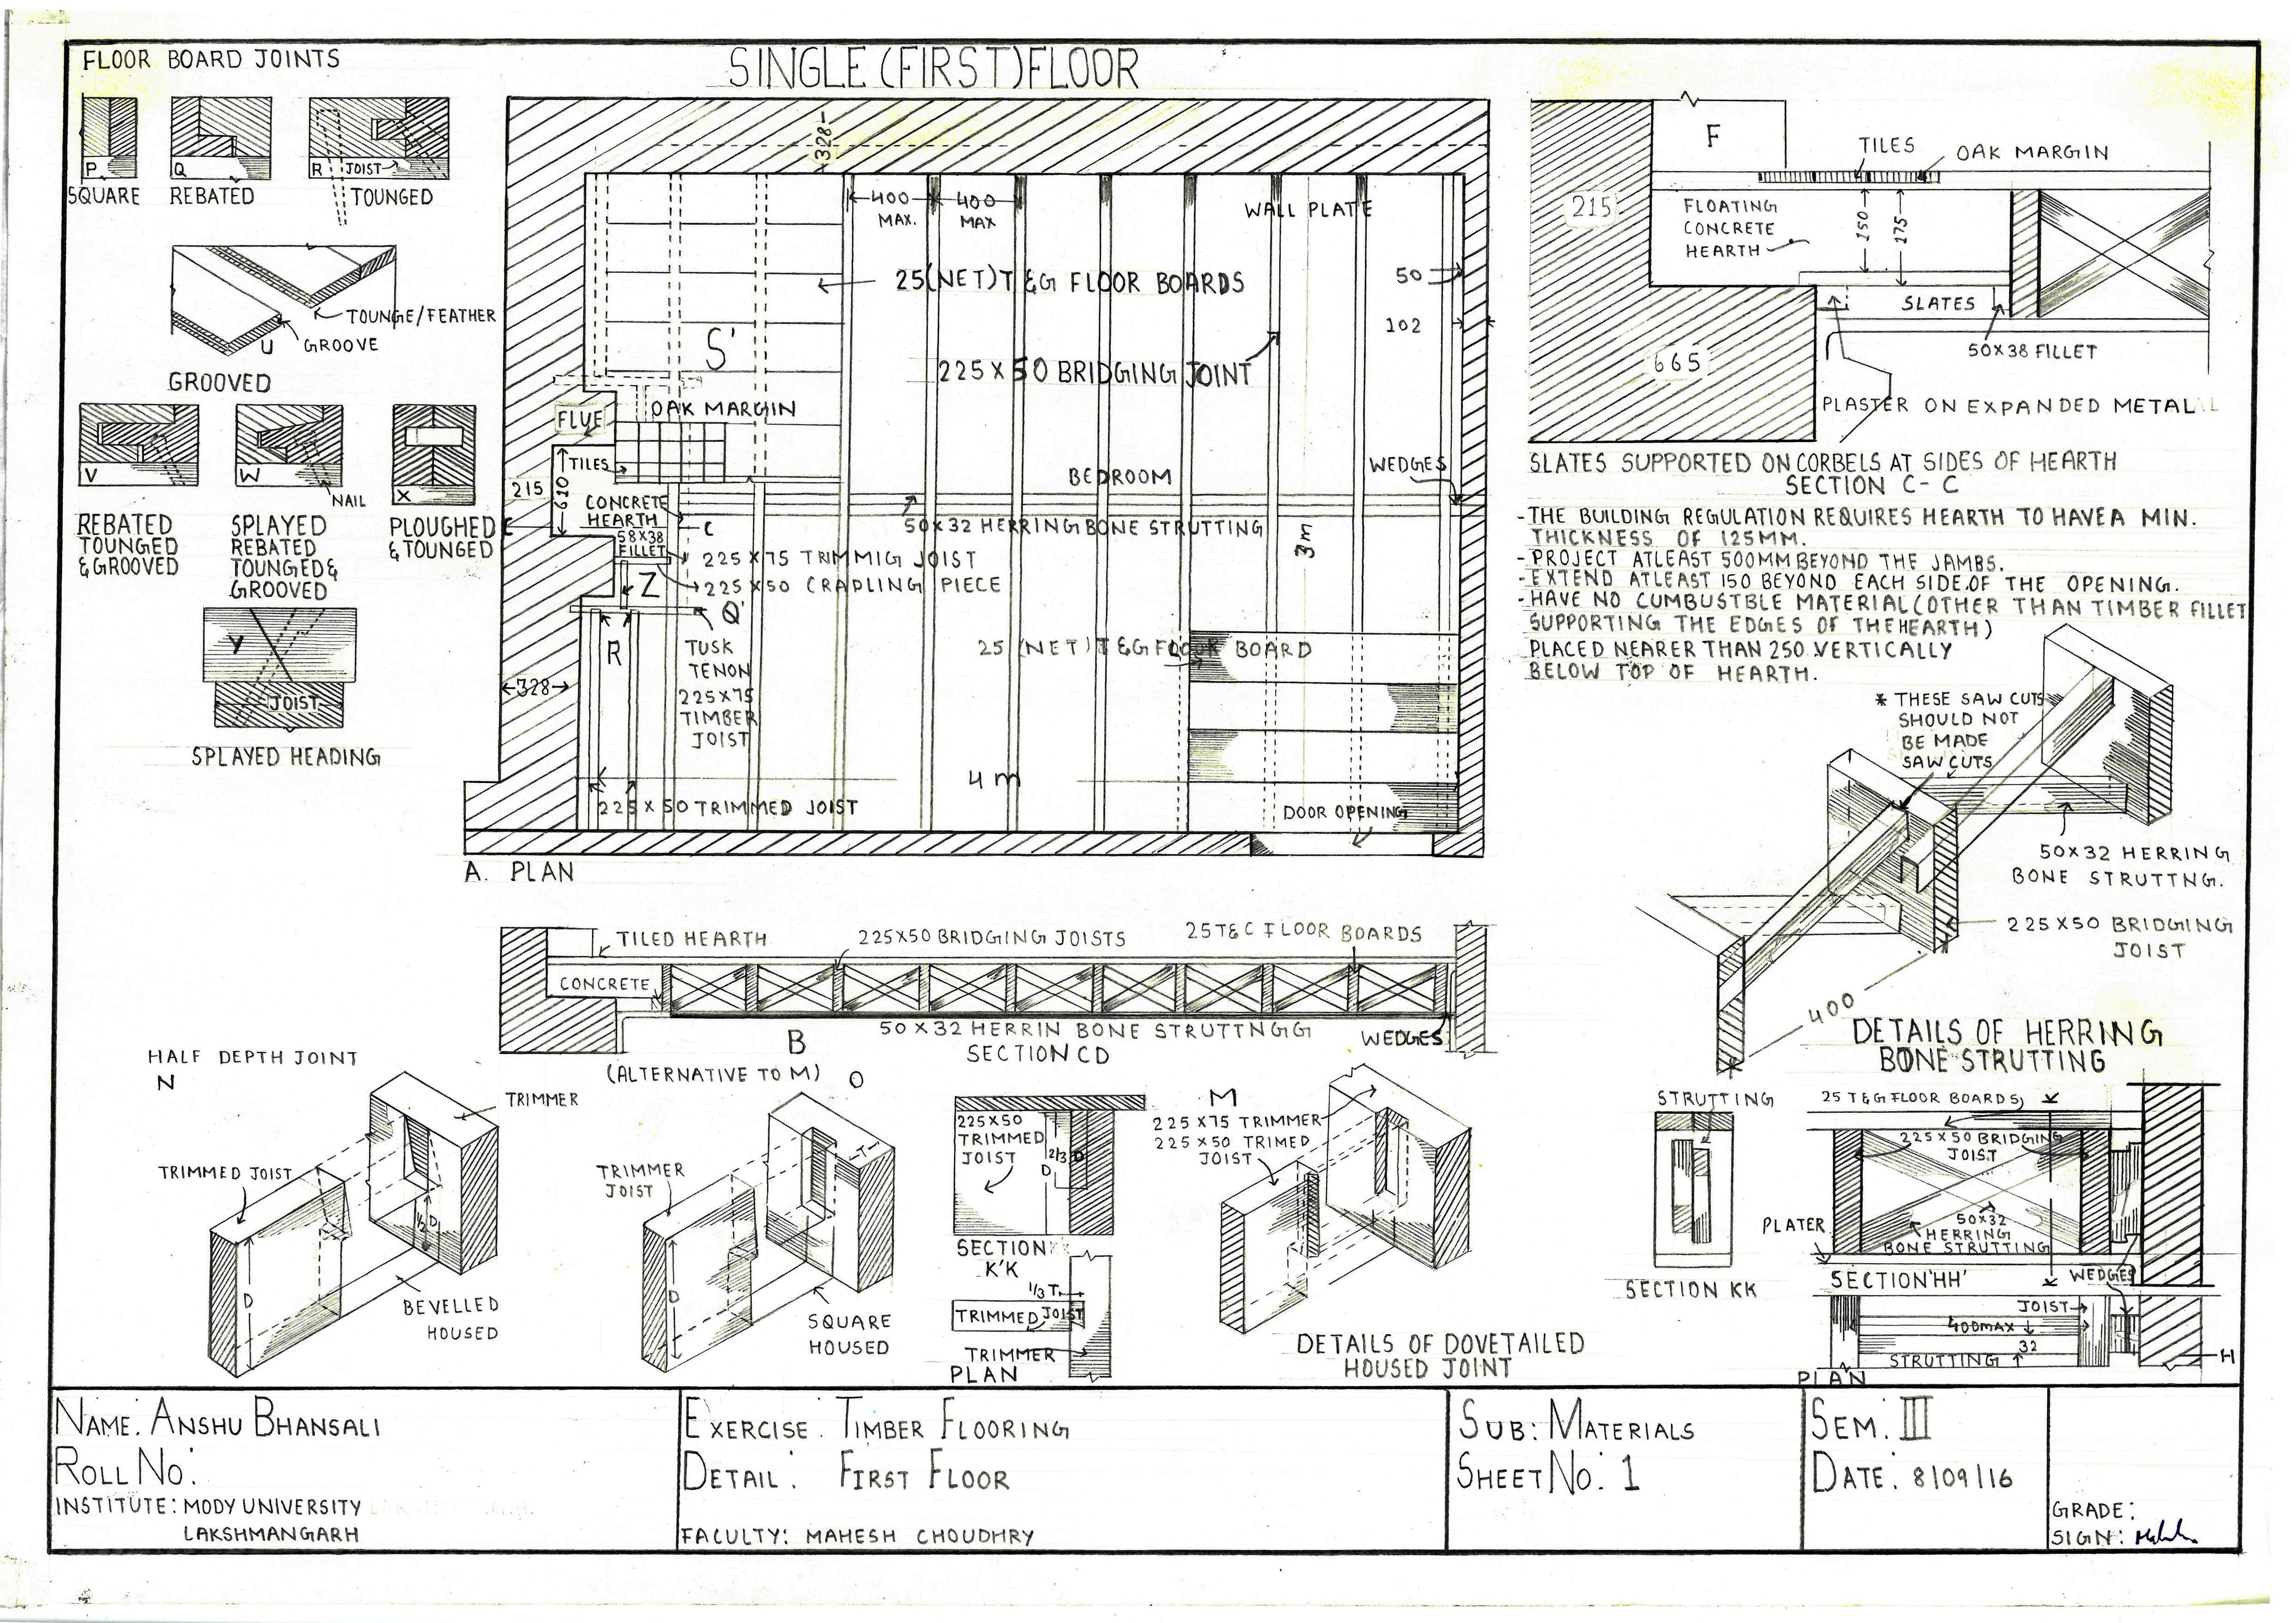 FLOOR BOARD JOINTS
SINGLE (FIRST) FLOOR
P
SQUARE
Q
REBATED
R
JOIST
TOUNGED
TOUNGE/FEATHER
U
GROOVE
GROOVED
V
REBATED
TOUNGED
& GROOVED
W
NAIL
SPLAYED
REBATED
TOUNGED &
GROOVED
X
PLOUGHED
& TOUNGED
Y
JOIST
SPLAYED HEADING
328
400
MAX.
400
MAX
WALL PLATE
25(NET)T &G FLOOR BOARDS
50
102
S'
225 X 50 BRIDGING JOINT
FLUE
OAK MARGIN
TILES
BEDROOM
WEDGES
215
610
CONCRETE
HEARTH
C
C
50X32 HERRING BONE STRUTTING
3m
58X38
FILLET
225 X 75 TRIMMIG JOIST
225 X 50 CRAPLING PIECE
Z
Q'
R
TUSK
TENON
225X75
TIMBER
JOIST
25 (NET) T &G FLOOR BOARD
328
4 m
225 X 50 TRIMMED JOIST
DOOR OPENING
A. PLAN
F
TILES
OAK MARGIN
215
FLOATING
CONCRETE
HEARTH
150
175
SLATES
50X38 FILLET
665
PLASTER ON EXPANDED METAL
SLATES SUPPORTED ON CORBELS AT SIDES OF HEARTH
SECTION C-C
-THE BUILDING REGULATION REQUIRES HEARTH TO HAVE A MIN.
THICKNESS OF 125MM.
-PROJECT ATLEAST 500MM BEYOND THE JAMBS.
-EXTEND ATLEAST 150 BEYOND EACH SIDE.OF THE OPENING.
-HAVE NO CUMBUSTBLE MATERIAL (OTHER THAN TIMBER FILLET
SUPPORTING THE EDGES OF THE HEARTH)
PLACED NEARER THAN 250 VERTICALLY
BELOW TOP OF HEARTH.
* THESE SAW CUTS
SHOULD NOT
BE MADE
SAW CUTS
50X32 HERRING
BONE STRUTTNG.
225X50 BRIDGING
JOIST
400
DETAILS OF HERRING
BONE STRUTTING
TILED HEARTH
225X50 BRIDGING JOISTS
25 T&C FLOOR BOARDS
CONCRETE
50 X 32 HERRIN BONE STRUTTNGG
WEDGES
B
SECTION CD
HALF DEPTH JOINT
N
TRIMMER
TRIMMED JOIST
1/2 D
D
BEVELLED
HOUSED
(ALTERNATIVE TO M)
O
TRIMMER
JOIST
T
D
SQUARE
HOUSED
225X50
TRIMMED
JOIST
2/3 D
D
SECTION
K'K
1/3 T
TRIMMED JOIST
TRIMMER
PLAN
M
225 X75 TRIMMER
225 X50 TRIMED
JOIST
DETAILS OF DOVETAILED
HOUSED JOINT
STRUTTING
SECTION KK
25 T&G FLOOR BOARDS
K
225 X50 BRIDGING
JOIST
PLATER
50X32
HERRING
BONE STRUTTING
SECTION 'HH'
K
WEDGES
JOIST
400MAX
32
STRUTTING
H
PLAN
NAME: ANSHU BHANSALI
ROLL NO:
INSTITUTE: MODY UNIVERSITY
LAKSHMANGARH
EXERCISE: TIMBER FLOORING
DETAIL: FIRST FLOOR
FACULTY: MAHESH CHOUDHRY
SUB: MATERIALS
SHEET NO: 1
SEM: III
DATE: 8/09/16
GRADE:
SIGN: